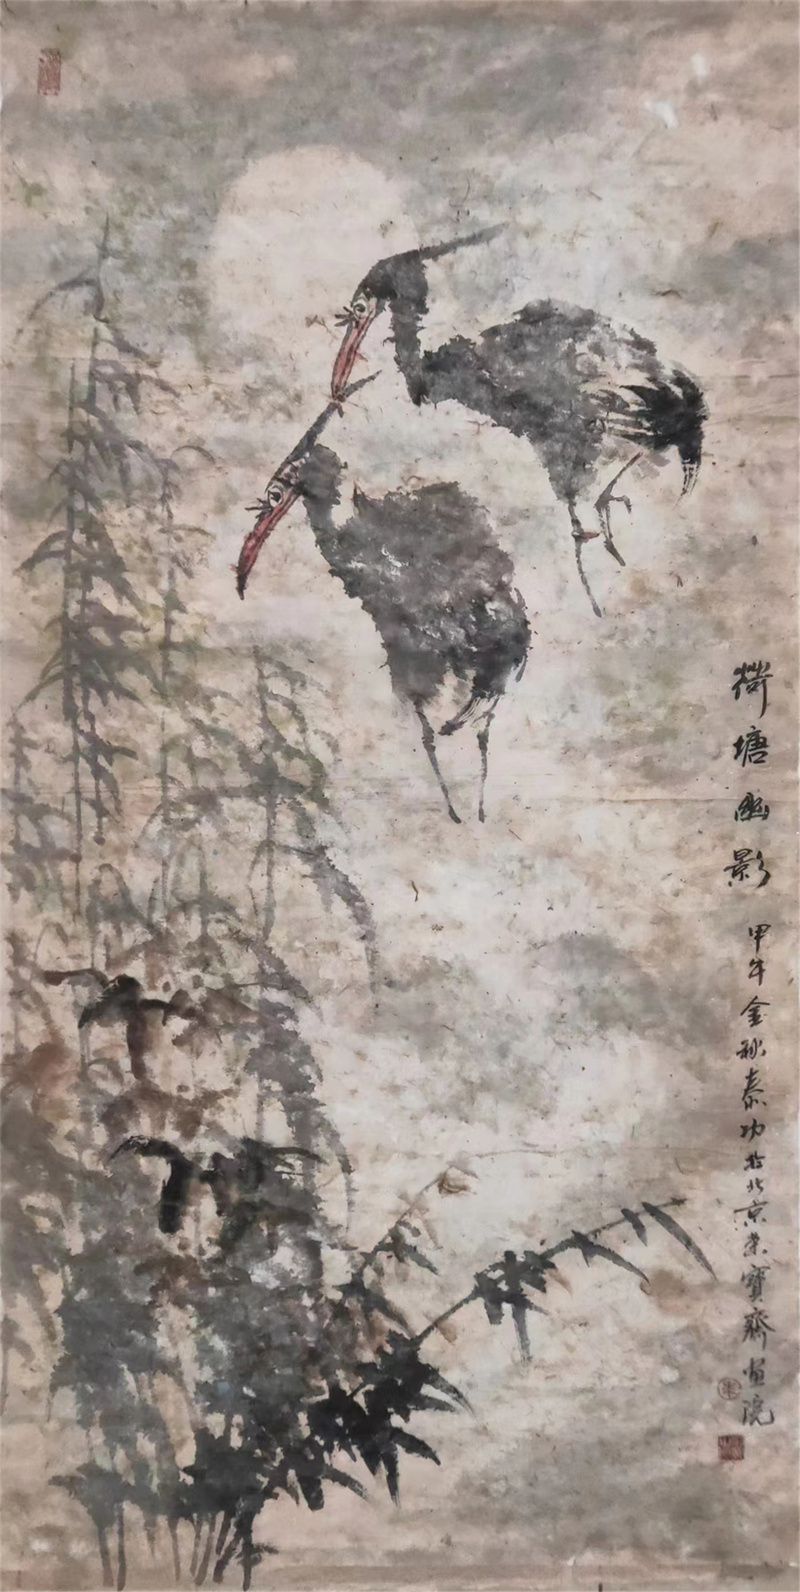 荷塘幽影
甲午金秋泰功於北京荣寳齋画院